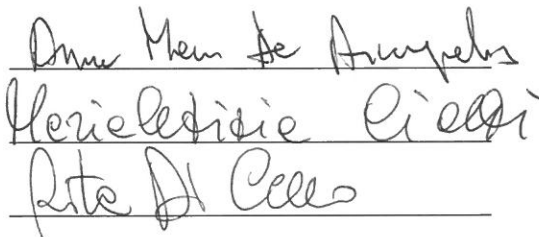 Anna Maria De Arcangelis
Marialetizia Ciotti
Rita Di Cello